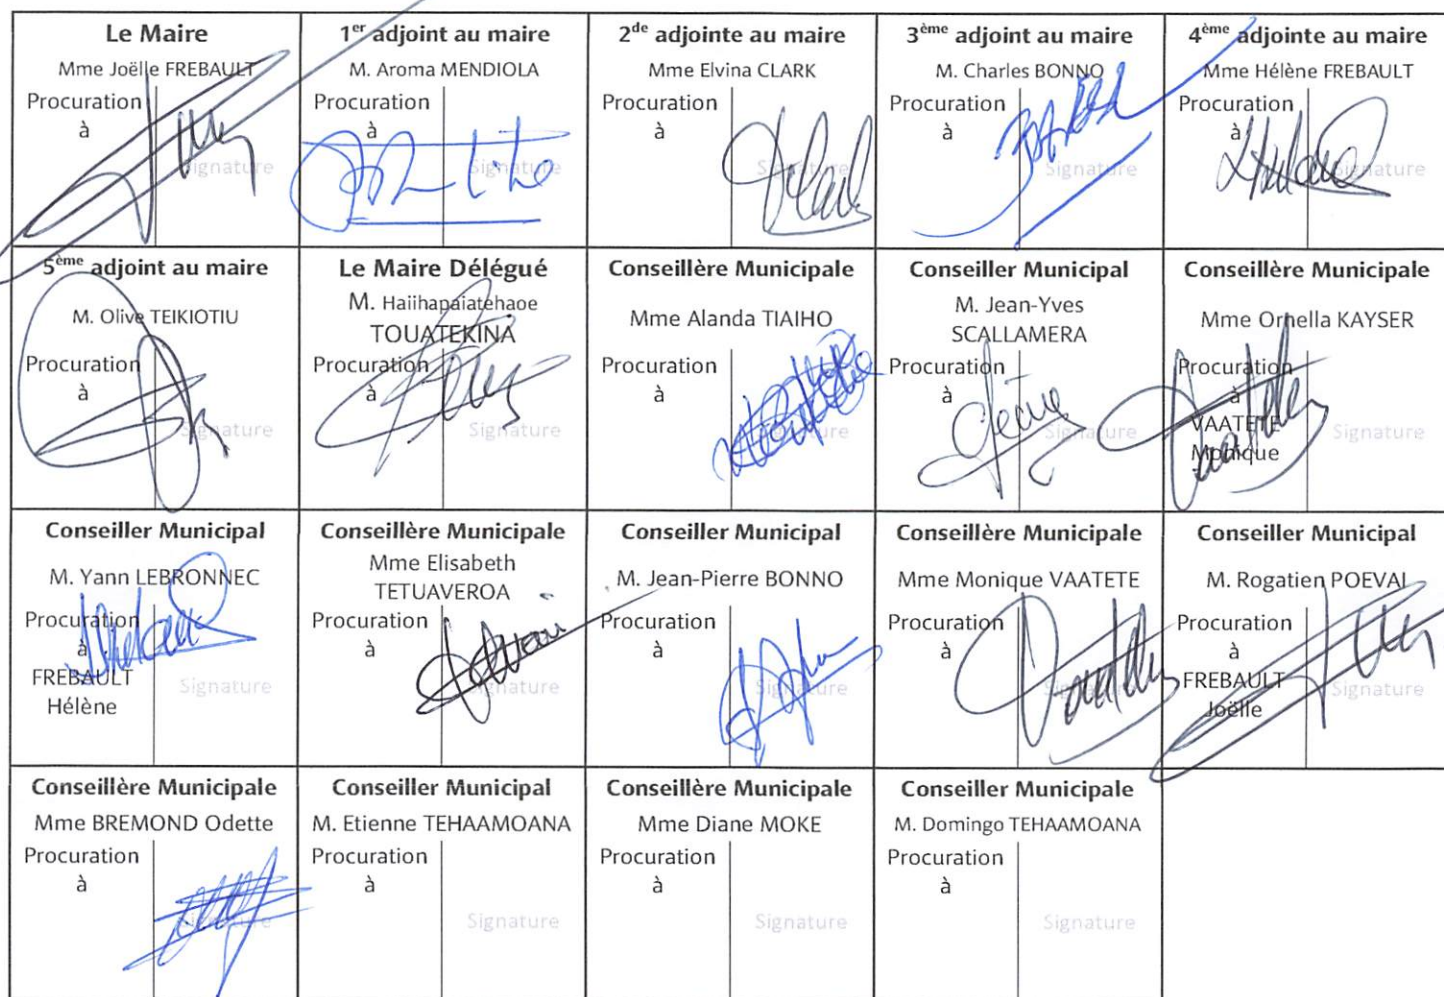 Le Maire
Mme Joëlle FREBAULT
Procuration
à
Signature
1er adjoint au maire
M. Aroma MENDIOLA
Procuration
à
Signature
2de adjointe au maire
Mme Elvina CLARK
Procuration
à
Signature
3ème adjoint au maire
M. Charles BONNO
Procuration
à
Signature
4ème adjointe au maire
Mme Hélène FREBAULT
Procuration
à
Signature
5ème adjoint au maire
M. Olive TEIKIOTIU
Procuration
à
Signature
Le Maire Délégué
M. Haiihapaiatehaoe
TOUATEKINA
Procuration
à
Signature
Conseillère Municipale
Mme Alanda TIAIHO
Procuration
à
Signature
Conseiller Municipal
M. Jean-Yves
SCALLAMERA
Procuration
à
Signature
Conseillère Municipale
Mme Ornella KAYSER
Procuration
à
VAATETE
Monique
Signature
Conseiller Municipal
M. Yann LEBRONNEC
Procuration
à
FREBAULT
Hélène
Signature
Conseillère Municipale
Mme Elisabeth
TETUAVEROA
Procuration
à
Signature
Conseiller Municipal
M. Jean-Pierre BONNO
Procuration
à
Signature
Conseillère Municipale
Mme Monique VAATETE
Procuration
à
Signature
Conseiller Municipal
M. Rogatien POEVAI
Procuration
à
FREBAULT
Joëlle
Signature
Conseillère Municipale
Mme BREMOND Odette
Procuration
à
Signature
Conseiller Municipal
M. Etienne TEHAAMOANA
Procuration
à
Signature
Conseillère Municipale
Mme Diane MOKE
Procuration
à
Signature
Conseiller Municipale
M. Domingo TEHAAMOANA
Procuration
à
Signature